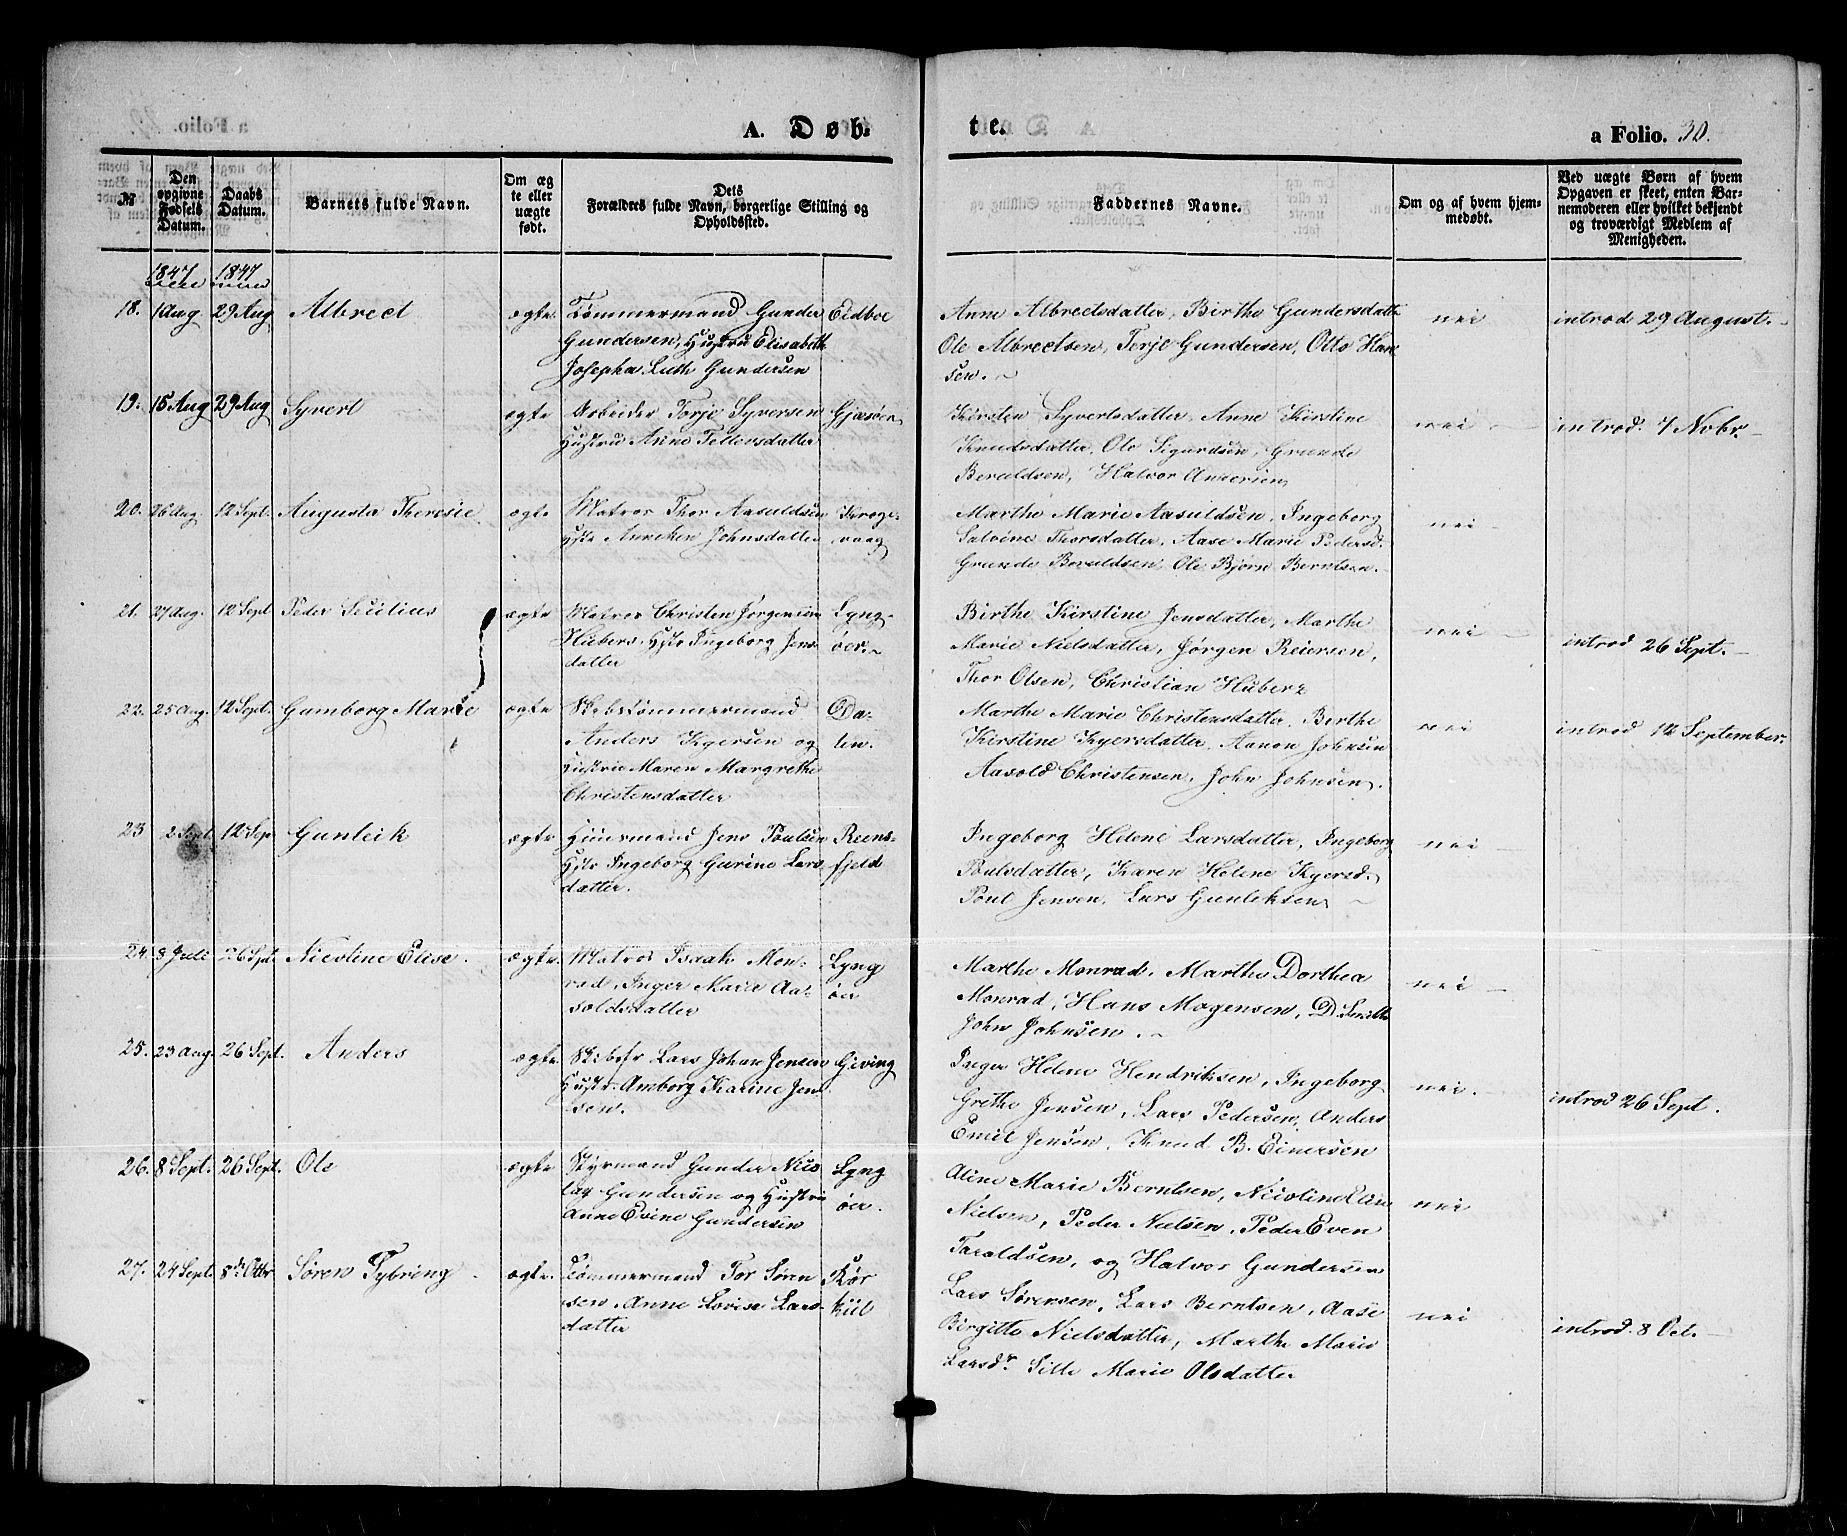 A. Døb-
te.
a Folio. 30.
№
Den opgivne Fødsels Datum.
Daabs Datum.
Barnets fulde Navn.
Om ægte eller uægte født.
Dets Forældres fulde Navn, borgerlige Stilling og Opholdssted.
Faddernes Navne.
Om og af hvem hjemmedøbt.
Ved uægte Børn af hvem Opgaven er skeet, enten Barnemoderen eller hvilket bekjendt og troværdigt Medlem af Menigheden.
1847 1847
18. 1 Aug 29 Aug Albrect ægte Tømmermand Gunder Eidboe
Gundersen, Hustru Elisabeth
Josepha Luth Gundersen
Anne Albrectsdatter, Birthe Gundersdatter
Ole Albrectsen, Terje Gundersen, Otto Han
sen.
nei
introd 29 August.
19. 15 Aug 29 Aug Syvert ægte Arbeider Terje Syversen
Hustru Anne Tellevsdatter
Kirsten Syvertsdatter, Anne Kirstine
Knudsdatter, Ole Sigurdsen, Grunde
Beruldsen, Halvor
nei
introd. 7 Novbr.
20. 26 Aug 12 Sept. Augusta Theresie ægte Matros Thor Aasuldsen Krogs-
Hstr Anneken Johnsdatter vaag
Marthe Marie Aasuldsen, Ingeborg
Salvine Thorsdatter, Aase Marie Pedersd.
Grunde Beruldsen, Ole Bjørn Berntsen.
nei
21. 27 Aug. 12 Sept Peder ægte Matros Christen Jørgensen Lyng-
Hubers, Hstr Ingeborg Jens- øer.
datter
Birthe Kirstine Jensdatter, Marthe
Marie Nielsdatter, Jørgen Reiersen,
Thor Olsen, Christian Huberz
nei
introd 26 Sept.
22. 25 Aug. 12 Sept. Gumborg Marie ægte Skibstømmermand Da-
Anders Kyersen og len.
Hustru Maren Margrethe
Christensdatter
Marthe Marie Christensdatter, Berthe
Kirstine Kyersdatter, Aanon Johnsen
Aasold Christensen, John Johnsen.
nei
introd 12 September.
23 2 Sept. 12 Sep Gunleik ægte Huusmand Jens Poulsen Reens-
Hstr Ingeborg Gurine Lars fjeld
datter.
Ingeborg Helene Larsdatter, Ingeborg
Poulsdatter, Karen Helene Kyersd.
Poul Jensen, Lars Gunleksen
nei
24. 8 Juli 26 Sept. Nicoline Elise. ægte. Matros Isaak Mon- Lyng
rad, Inger Marie Aa- øer
soldsdatter
Marthe Monrad, Marthe Dorthea
Monrad, Hans Mogensen, D. Smith
John Johnsen.
nei
25. 23 Aug. 26 Sept. Anders ægte. Skibsfr Lars Johan Jensen Giving
Hustr. Amborg Karine Jen
sen.
Inger Helene Hendriksen, Ingeborg
Grethe Jensen, Lars Pedersen, Anders
Emil Jensen, Knud B. Einersen
nei.
introd 26 Sept.
26. 8 Sept. 26 Sept. Ole ægte Styrmand Gunder Nico Lyng
lay Gundersen og Hustru øer.
Anne Evine Gundersen
Aline Marie Berntsen, Nicoline
Nielsen, Peder Nielsen, Peder Even
Taraldsen, og Halvor Gundersen
nei
27. 24 Sept. 8de Octbr Søren Tybring. ægte. Tømmermand Tor Søren Kør
sen, Anne Lovise Lars- kiil
datter
Lars Sørensen, Lars Berntsen, Aase
Birgitte Nielsdatter, Marthe Marie
Larsdr. Sille Marie Olsdatter
nei
introd. 8 Oct.